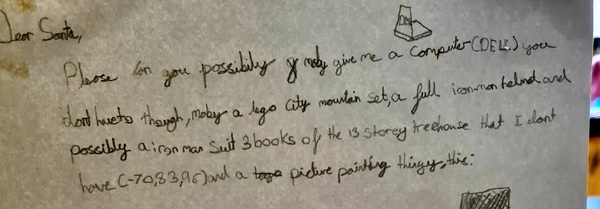 Dear Santa,
Please can you possibily maby give me a computer (DELL) you
dont have to though, maby a lego city mountin set, a full iron-man helmet and
possibly a iron man suit 3 books of the 13 storey treehouse that I dont
have (-70,83,96) and a picture painting thingy, this: